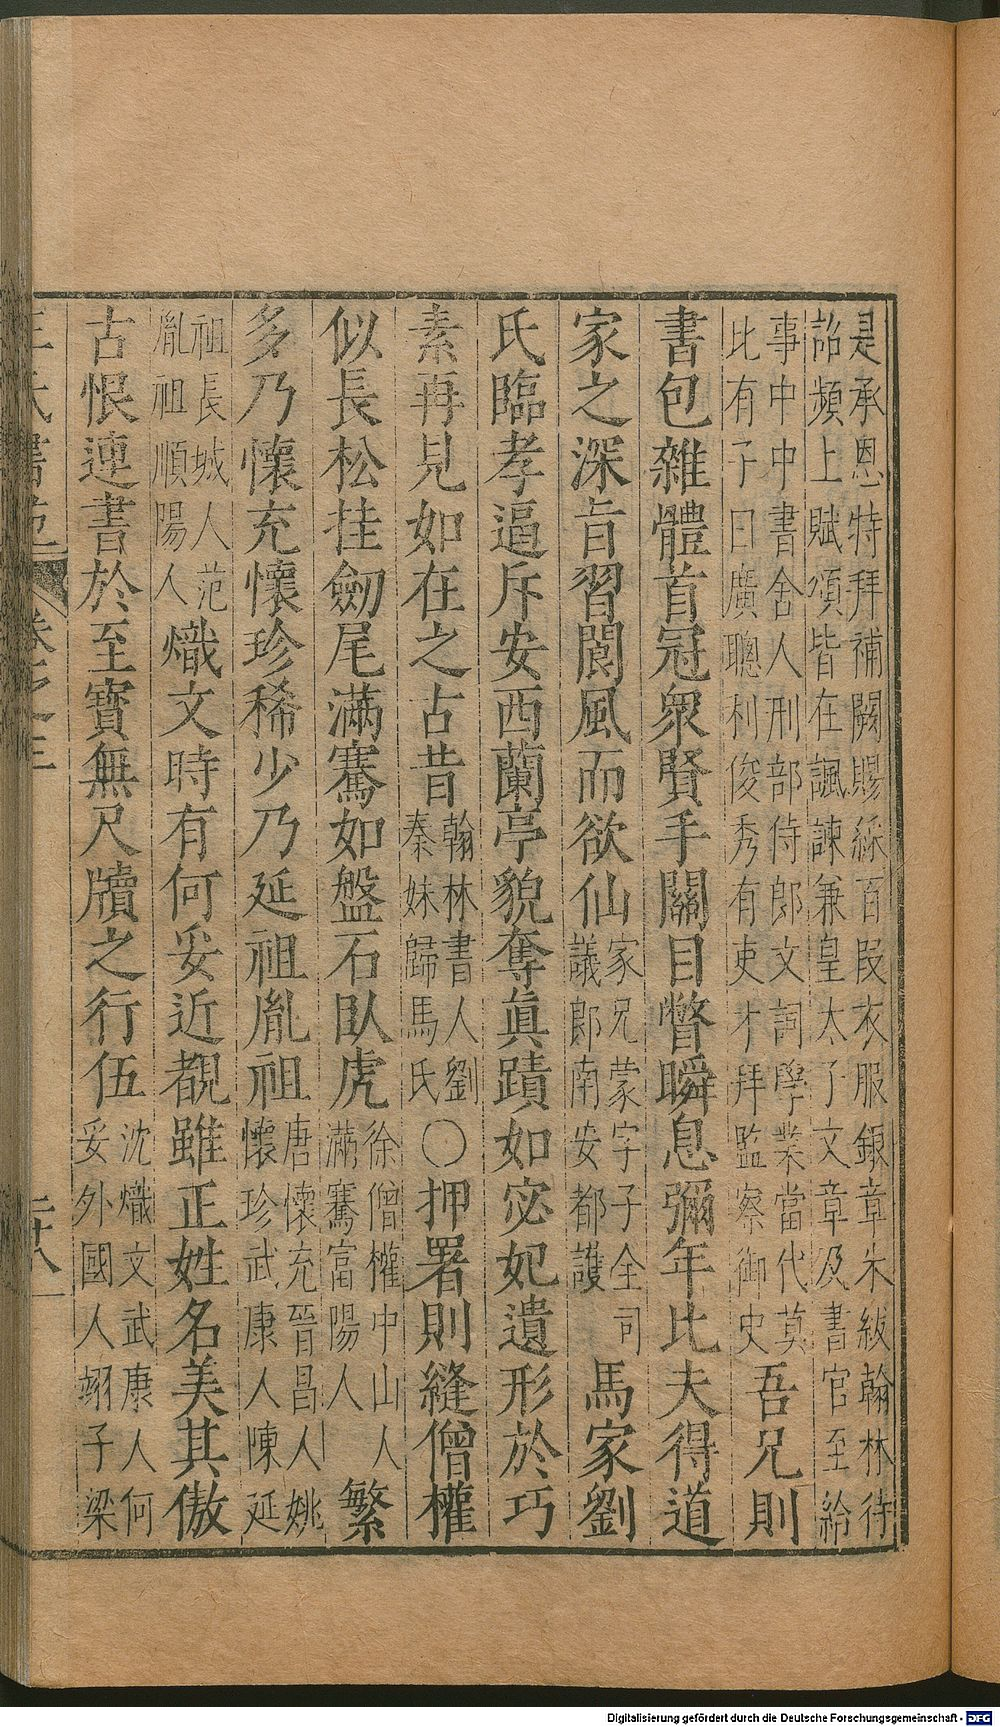 是承恩特拜補闕賜綵百段衣服銀章朱紱翰林待
詔頻上賦頌皆在諷諫兼皇太子文章及書官至給
事中中書舍人刑部侍郎文詞學業當代莫
比有子曰廣聰利俊秀有吏才拜監察御史吾兄則
書包雜體首冠衆賢手闢目瞥瞬息彌年比夫得道
家之深旨習閬風而欲仙家兄蒙字子全司
議郎南安都護馬家劉
氏臨孝逼斥安西蘭亭貌奪真蹟如宓妃遺形於巧
素再見如在之古昔翰林書人劉
秦妹歸馬氏〇押署則縫僧權
似長松挂劒尾滿騫如盤石臥虎徐僧權中山人
滿騫富陽人繁
多乃懷充懷珍稀少乃延祖胤祖唐懷充晉昌人姚
懷珍武康人陳延
祖長城人范
胤祖順陽人熾文時有何妥近覩雖正姓名美其傲
古恨連書於至寶無尺牘之行伍沈熾文武康人何
妥外國人翊子梁
王氏書苑 卷之三 二十八
Digitalisierung gefördert durch die Deutsche Forschungsgemeinschaft - DFG